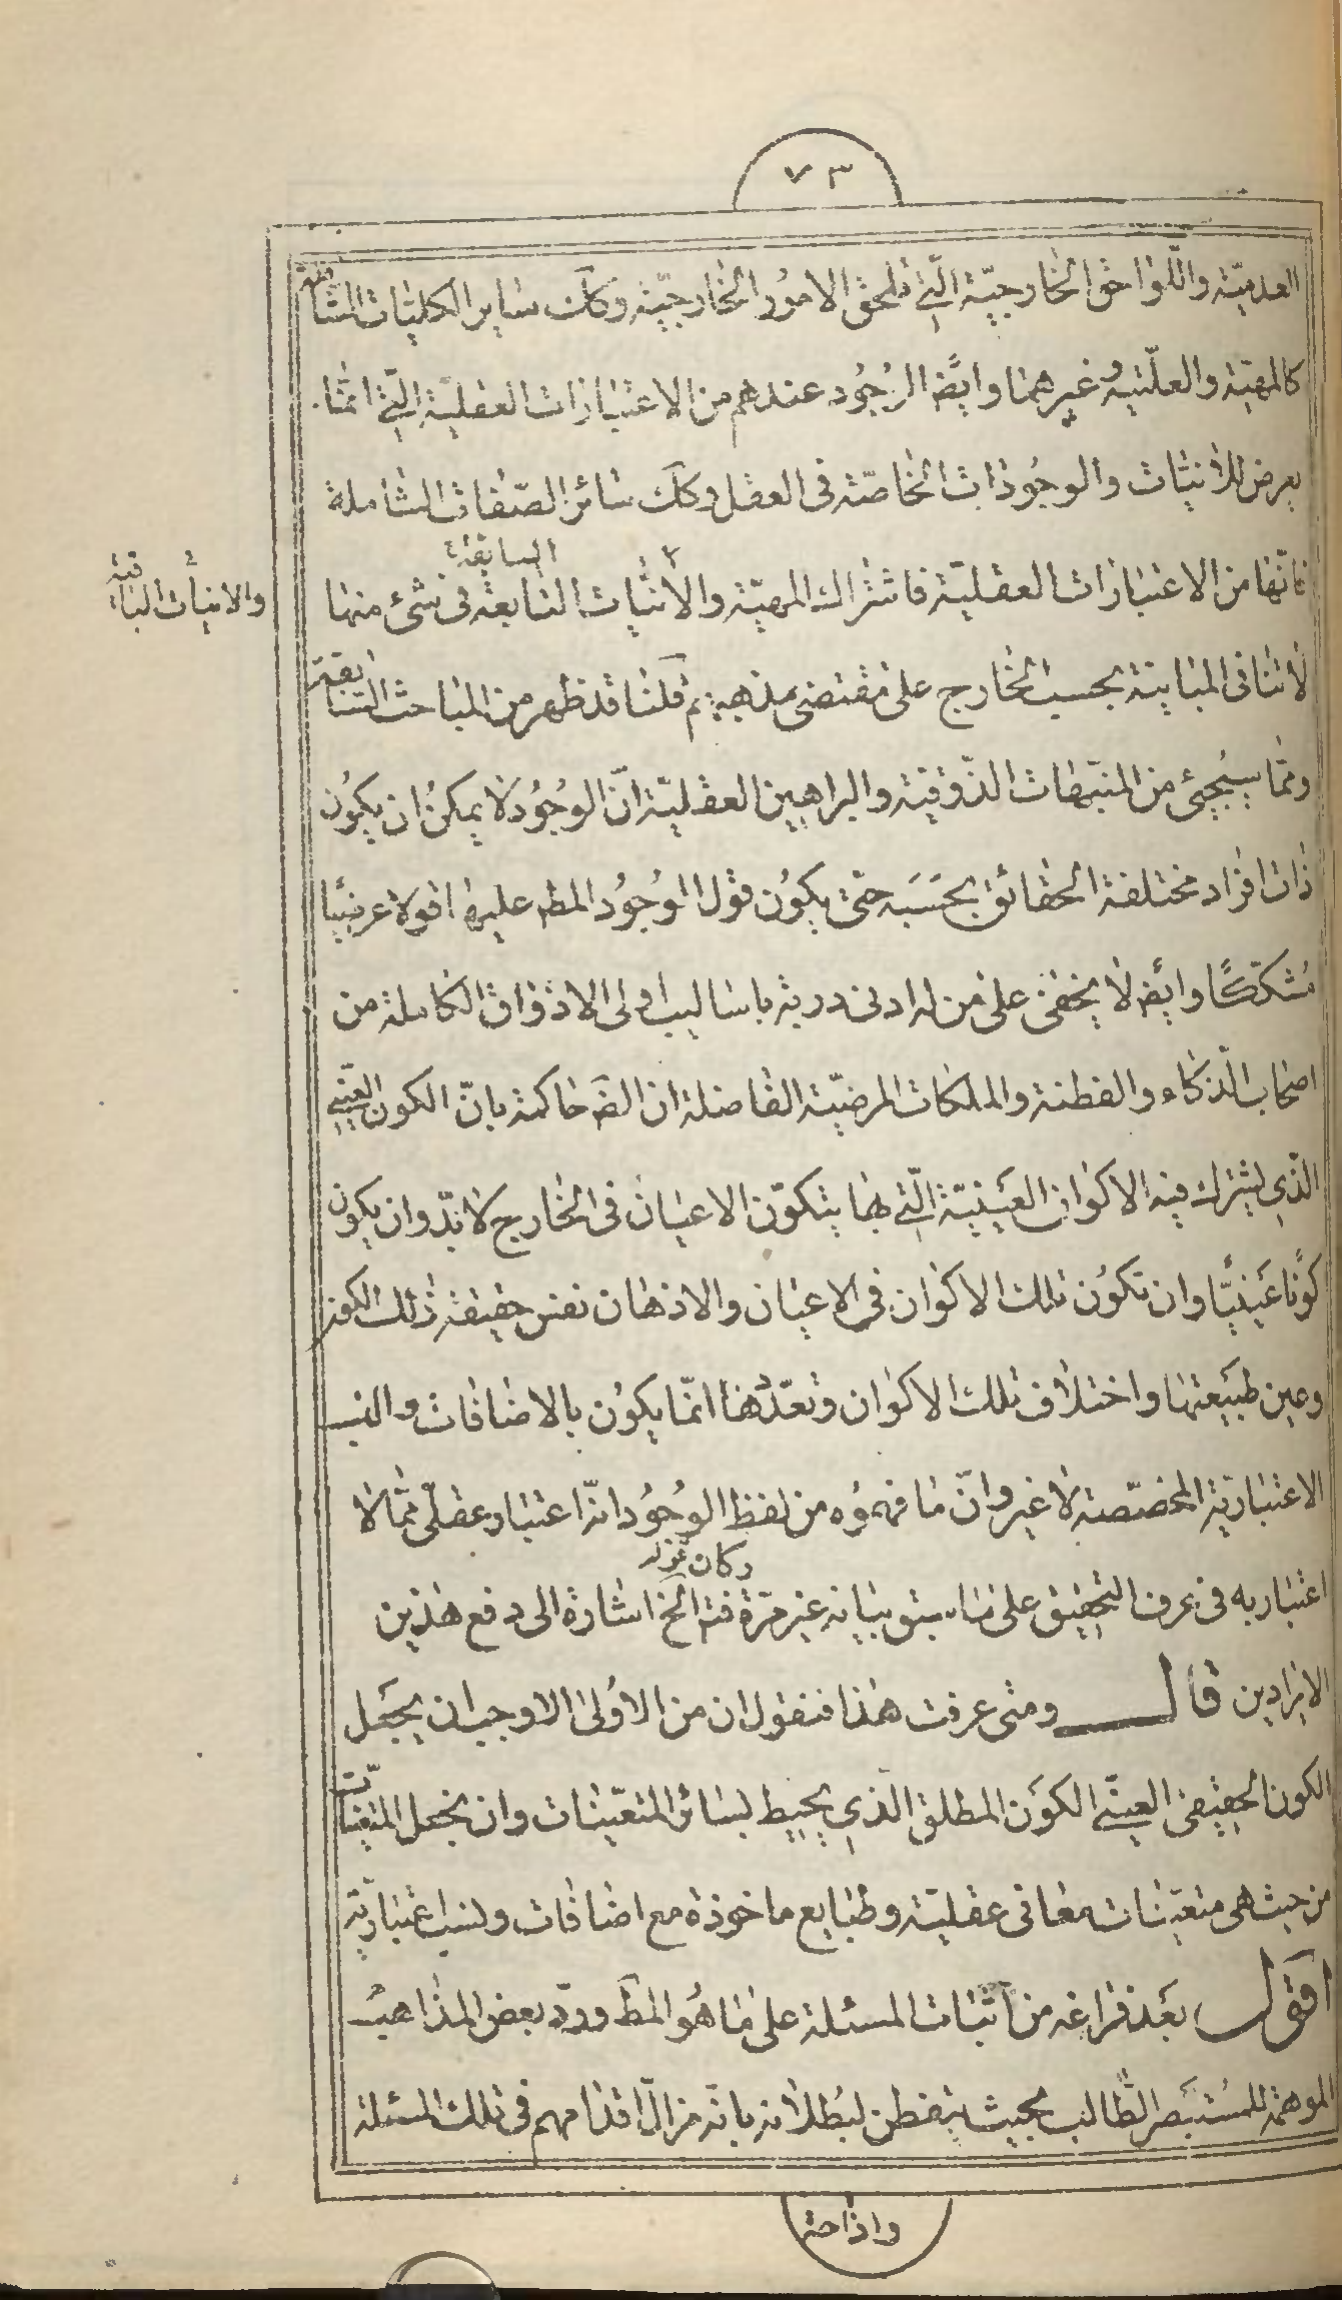 ٧٣
العدميّة واللّواحق الخارجيّة الّتى تلحق الامور الخارجيّة وكك ساير الكليّات الشاملة
كالمهيّة والعلّتية وغيرهما وايضً الوجُود عندهم من الاعتبارات العقليّة الّتى انّما
يعرض للانيّات والوجُودات الخاصّة فى العقل وكك سائر الصّفات الشاملة
السابقة
فانّها من الاعتبارات العقليّة فاشتراك المهيّة والانيّات التابعة فى شئ منها
والانيات الباقية
لا تنافى المباينة بحسب الخارج على مقتضى مذهبهم قلنا قد ظهر من المباحث السّابقة
وممّا سيُجيئ من المنبّهات الذّوقيّة والبراهين العقليّة انّ الوجُود لا يمكنُ ان يكُون
ذات افراد مختلفة الحقائق بحَسَبَه حتى يكوُن قول الوُجوُد المط عليها قولا عرضيًّا
مُشكّكًا وايضً لا يخفى على من له ادنى دربة باساليب اولى الاذواق الكاملة من
اصحاب الذكاء والفطنة والملكات المرضيّة الفاضلة ان الضّ حاكمة بانّ الكون العينى
الّذى يشترك فيه الاكوان العَينيّة الّتى بها يتكوّن الاعيان فى الخارج لا بدّ وان يكون
كونًا عَينيًّا وان تكوُن تلك الاكوان فى الاعيان والاذهان نفس حقيقة ذلك الكون
وعين طبيعتها واختلاف تلك الاكوان وتعدّدها انّما يكوُن بالاضافات والنسب
الاعتباريّة المخصّصة لا غير وانّ ما فهموُه من لفظ الوجُود انّه اعتبار عقلىّ ممّا لا
وكان قوله
اعتبار به فى عرف التحقيق على ما سبق بيانه غير مرّة فتم الخ اشارة الى دفع هذين
الايرادين قال ومتى عرفت هذا فنقول ان من الاُولى الاوجب ان يجعَل
الكون الحقيقى العينّى الكوَن المطلق الذى يحيط بسائر المتعيّنات وان يجعل المتعيّنات
من حيث هى متعيّنات معانى عقليّة وطبايع ماخوذة مع اضافات ونسب اعتباريّة
اقول بعَد فراغه من اثبات المسئلة على ما هُو المط وردّ بعض المذاهب
الموهمة للمُستبَصر الطّالب بحيث يتفطن لبُطلانه بانّه مزالّ اقدامهم فى تلك المسئلة
واذاحة